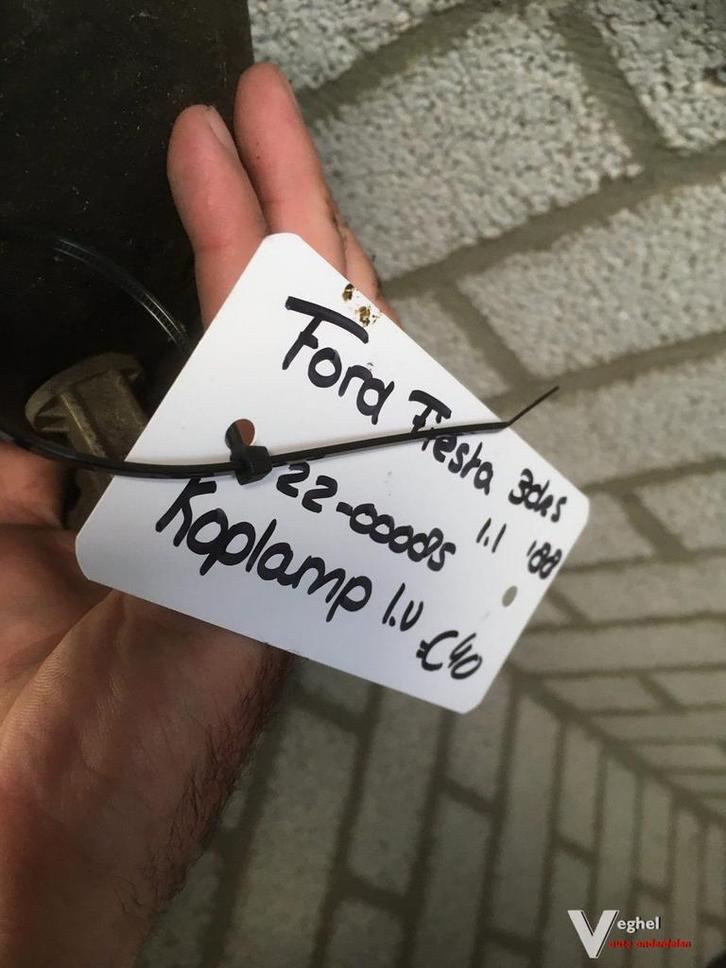 Ford Fiesta 3drs
1.1 '88
22-00085
Koplamp l.v
€40
Veghel
auto onderdelen